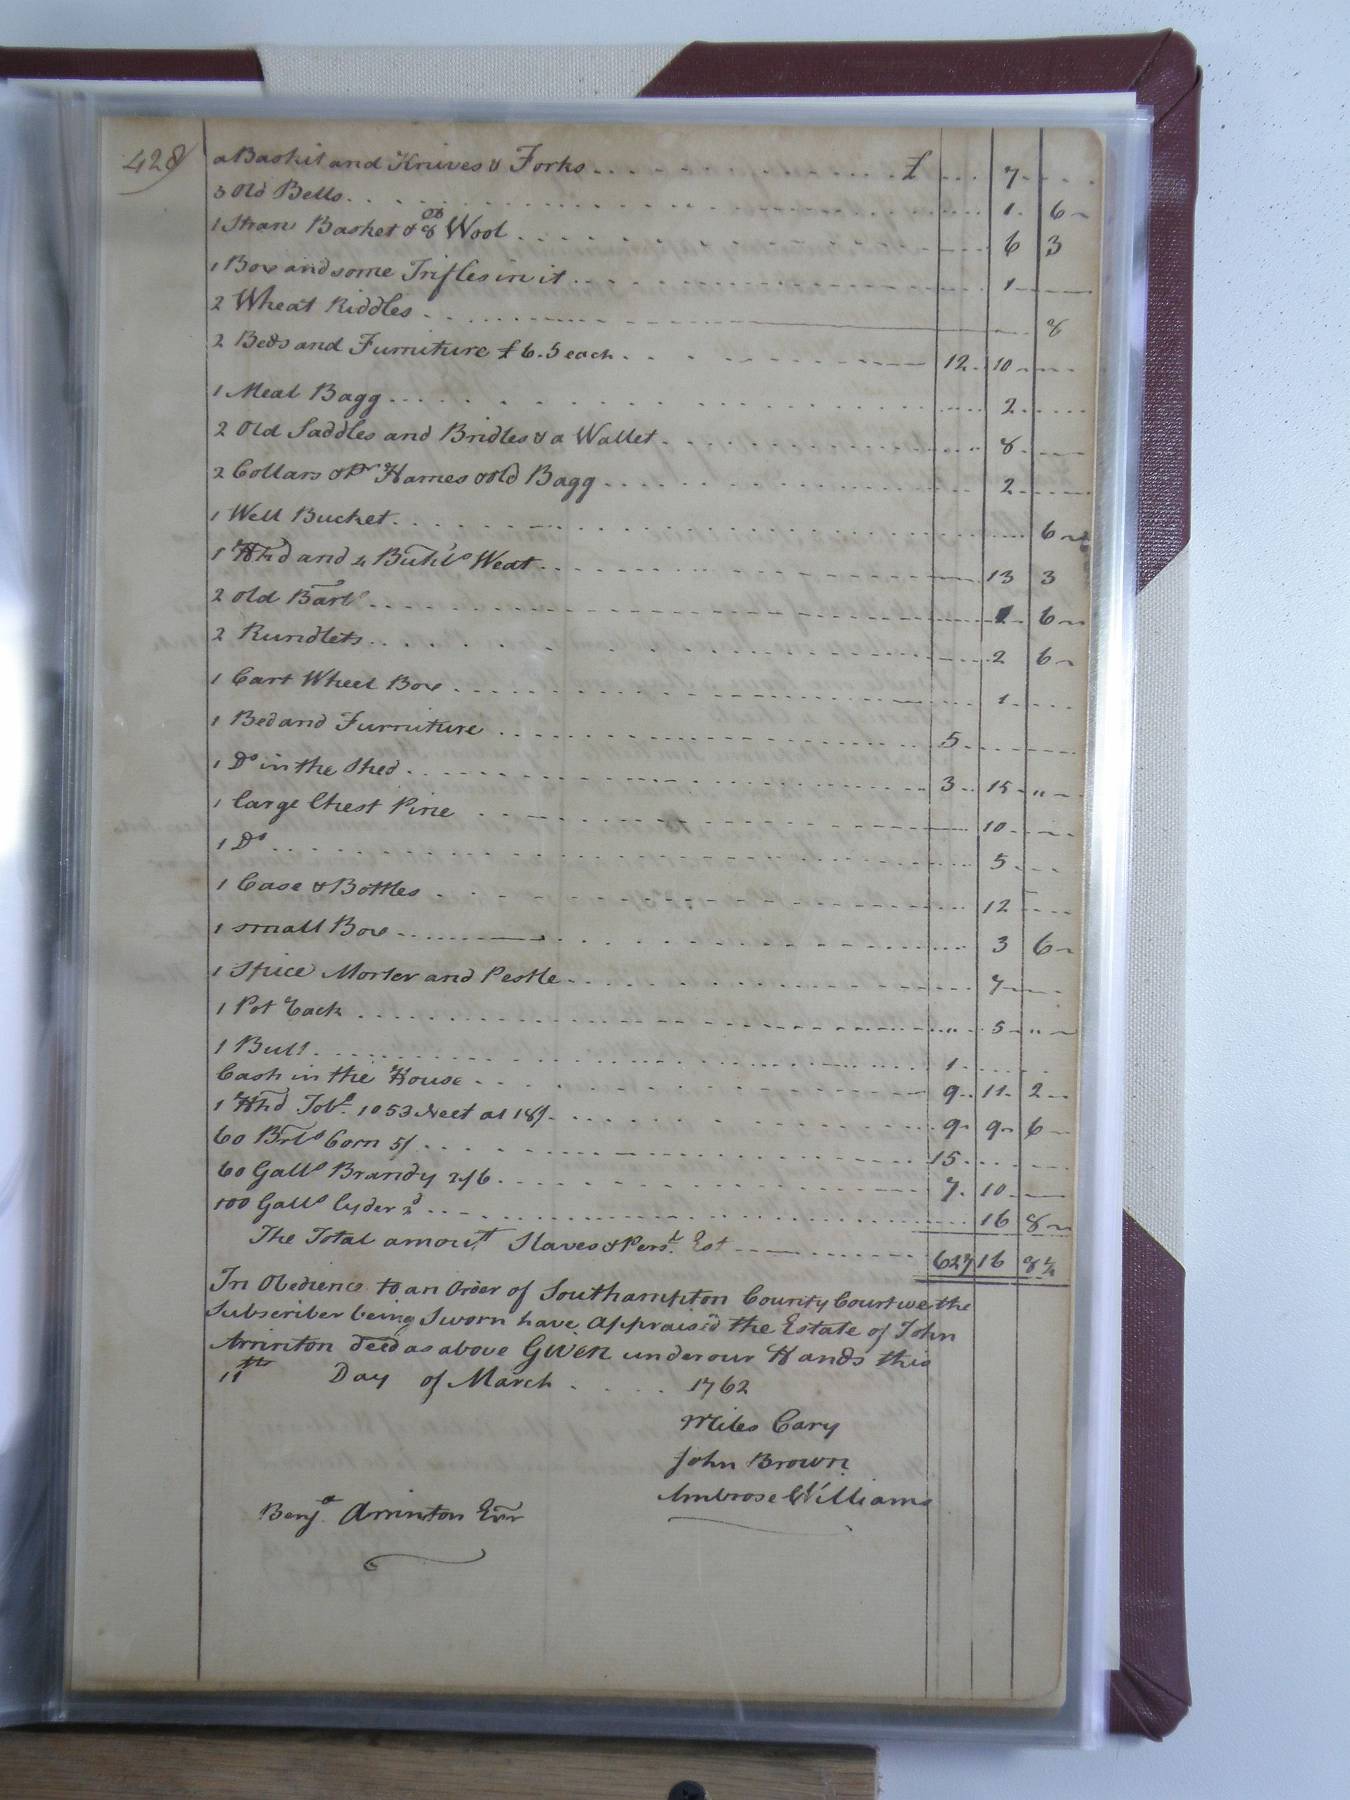 428
a Baskit and Knives & Forks . . . £ . . . 7 . . .
3 Old Bells . . . 1 . 6
1 Straw Basket & 8 lb Wool . . . 6 3
1 Box and some Trifles in it . . . 1
2 Wheat Riddles . . . 8
2 Beds and Furniture £6.5 each . . . 12 . 10
1 Meal Bagg . . . 2
2 Old Saddles and Bridles & a Wallet . . . 8
2 Collars & Pr Hames & old Bagg . . . 2
1 Well Bucket . . . 6
1 Hhd and 4 Bush'ls Weat . . . 13 3
2 old Barls . . . 1 6
2 Rundlets . . . 2 6
1 Cart Wheel Box . . . 1
1 Bed and Furniture . . . 5
1 Do in the Shed . . . 3 15 "
1 large Chest Pine . . . 10
1 Do . . . 5
1 Case & Bottles . . . 12
1 small Box . . . 3 6
1 Spice Morter and Pestle . . . 7
1 Pot Rack . . . " 5 "
1 Bull . . . 1
Cash in the House . . . 9 11 2
1 Hhd Tobo. 1053 Neet at 18/ . . . 9 9 6
60 Brls Corn 5/ . . . 15
60 Galls Brandy 2/6 . . . 7 10
100 Galls Cyder 2d . . . 16 8
The Total amount Slaves & Persl. Est . . . 627 16 8 1/4
In Obedience to an Order of Southampton County Court we the
Subscriber being Sworn have Appraised the Estate of John
Arrinton Deed as above Given under our Hands this
11th Day of March . . . . 1762
Miles Cary
John Brown
Ambrose Williams
Benja. Arrinton Exr